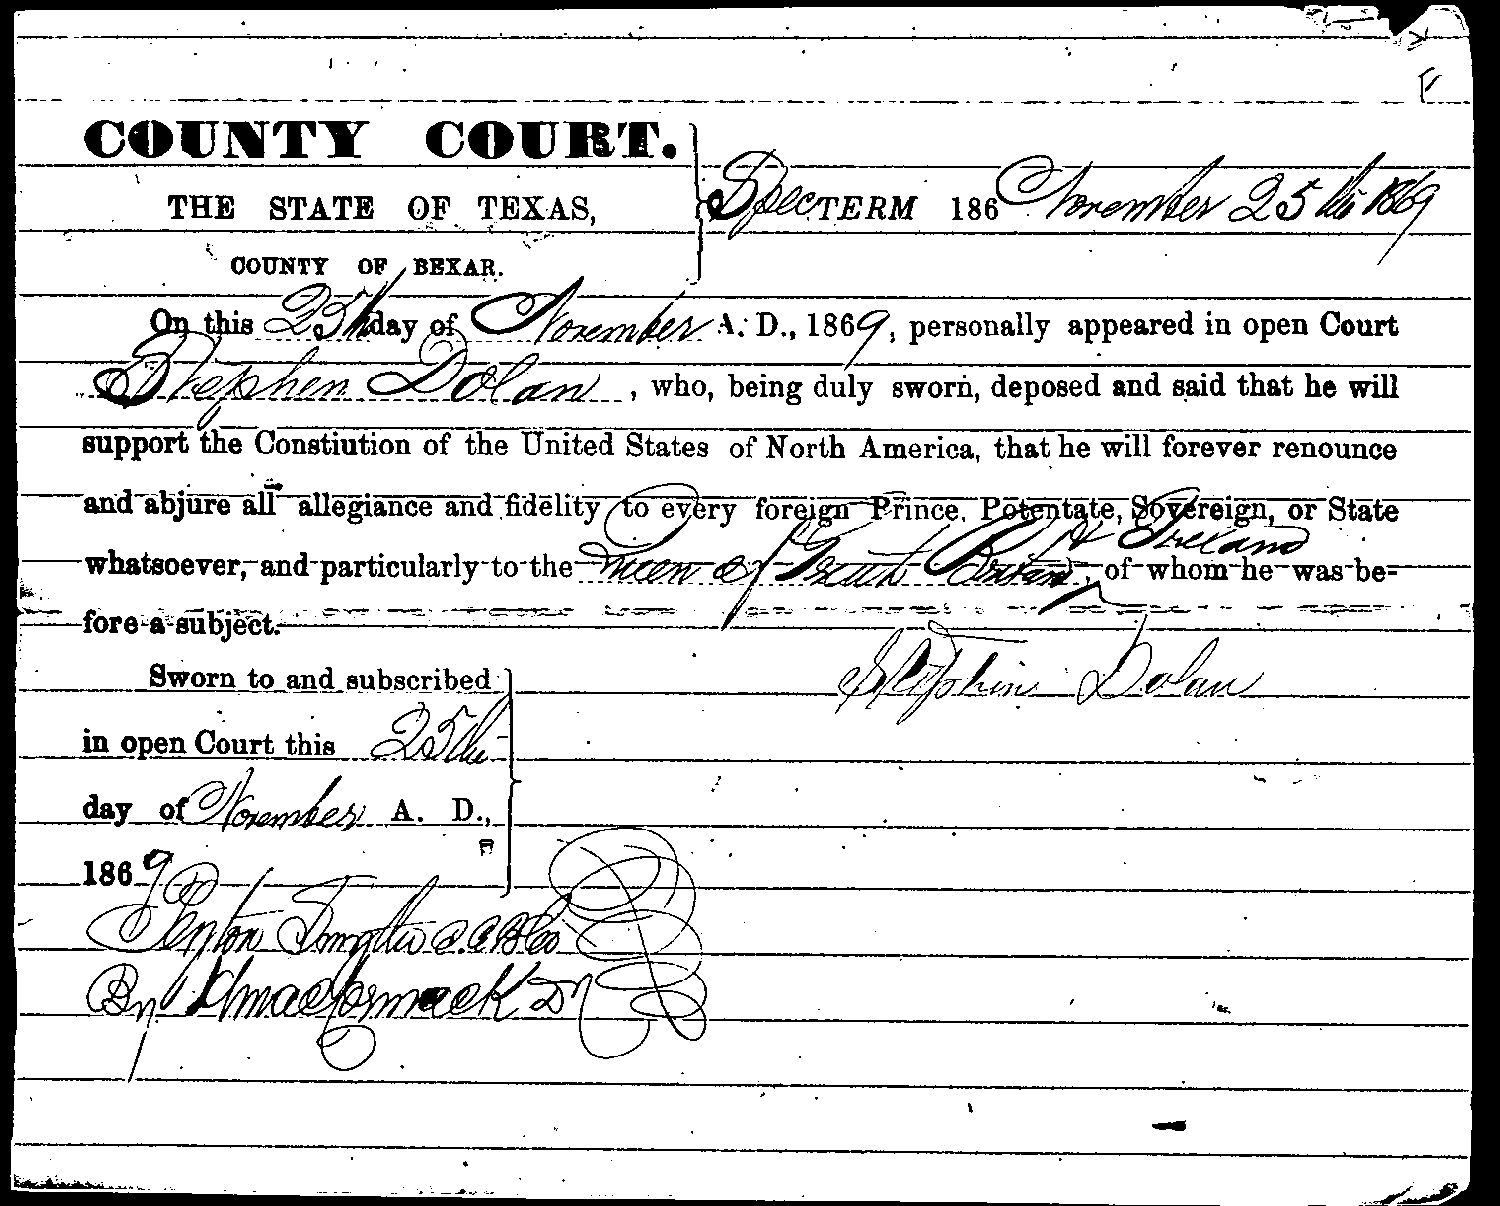 COUNTY COURT.
THE STATE OF TEXAS,
COUNTY OF BEXAR.
Spec TERM 186 November 25th 1869
On this 25th day of November A. D., 1869, personally appeared in open Court
Stephen Dolan, who, being duly sworn, deposed and said that he will
support the Constiution of the United States of North America, that he will forever renounce
and abjure all allegiance and fidelity to every foreign Prince, Potentate, Sovereign, or State
& Ireland
whatsoever, and particularly to the Queen of Great Britain, of whom he was be-
fore a subject.
Stephen Dolan
Sworn to and subscribed
in open Court this 25th
day of November A. D.,
1869
By